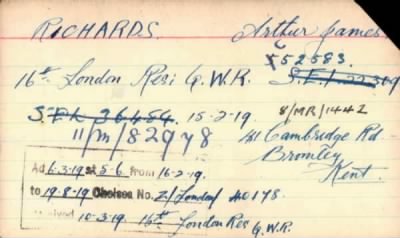 RICHARDS. Arthur James
52583.
16th London Regi Q.W.R. S.F.L. 22319
S.P.K. 36484. 15-2-19. 8/MR/1442
11/M/82978 181 Cambridge Rd
Bromley
Kent.
Ad 6.3.19 at 5-6 from 16-2-19.
to 19-8-19 Chelsea No. Z/London/ 40178.
10-3-19. 16th London Res Q.W.R.